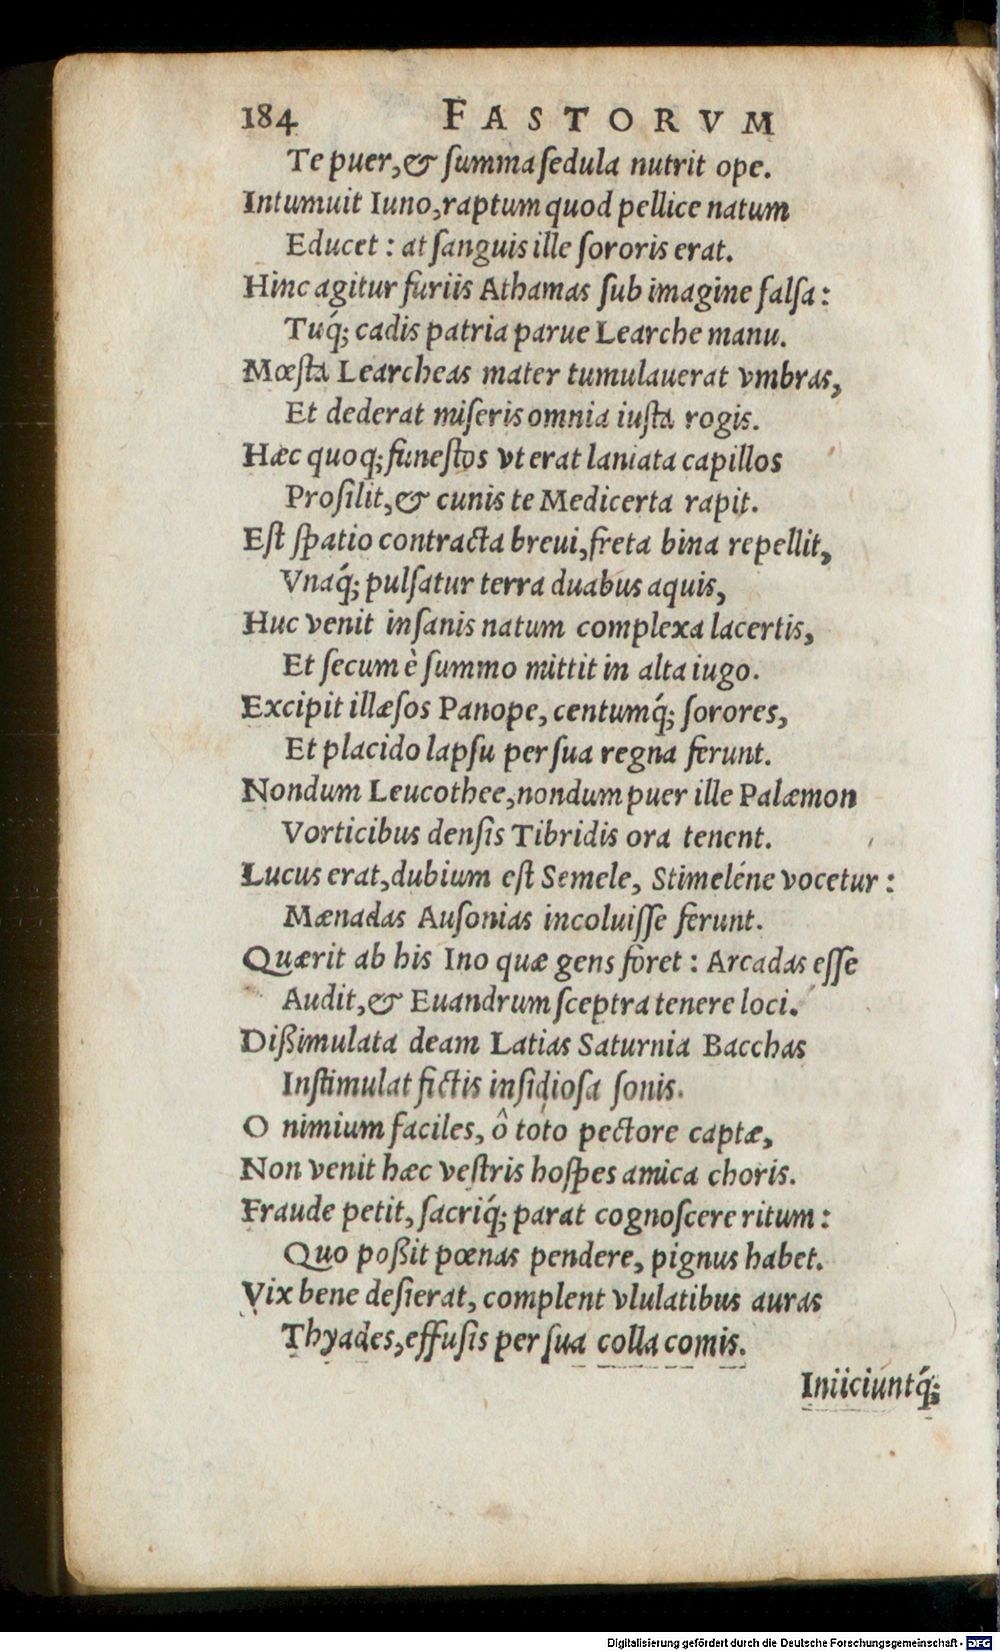 184 FASTORVM
Te puer,& ſumma ſedula nutrit ope.
Intumuit Iuno,raptum quod pellice natum
Educet : at ſanguis ille ſororis erat.
Hinc agitur furiis Athamas ſub imagine falſa :
Tuq́; cadis patria parue Learche manu.
Mœſta Learcheas mater tumulauerat vmbras,
Et dederat miſeris omnia iuſta rogis.
Hæc quoq; funeſtos vt erat laniata capillos
Proſilit,& cunis te Medicerta rapit.
Eſt ſpatio contracta breui,freta bina repellit,
Vnaq́; pulſatur terra duabus aquis,
Huc venit inſanis natum complexa lacertis,
Et ſecum è ſummo mittit in alta iugo.
Excipit illæſos Panope, centumq́; ſorores,
Et placido lapſu per ſua regna ferunt.
Nondum Leucothee,nondum puer ille Palæmon
Vorticibus denſis Tibridis ora tenent.
Lucus erat,dubium eſt Semele, Stimeléne vocetur :
Mænadas Auſonias incoluiſſe ferunt.
Quærit ab his Ino quæ gens foret : Arcadas eſſe
Audit,& Euandrum ſceptra tenere loci.
Dißimulata deam Latias Saturnia Bacchas
Inſtimulat fictis inſidioſa ſonis.
O nimium faciles, ô toto pectore captæ,
Non venit hæc veſtris hoſpes amica choris.
Fraude petit, ſacriq́; parat cognoſcere ritum :
Quo poßit pœnas pendere, pignus habet.
Vix bene deſierat, complent vlulatibus auras
Thyades,effuſis per ſua colla comis.
Iniiciuntq́;
Digitalisierung gefördert durch die Deutsche Forschungsgemeinschaft - DFG